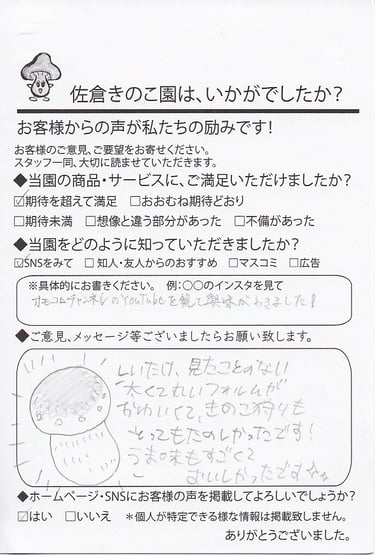 佐倉きのこ園は、いかがでしたか？
お客様からの声が私たちの励みです！
お客様のご意見、ご要望をお寄せください。
スタッフ一同、大切に読ませていただきます。
◆当園の商品・サービスに、ご満足いただけましたか？
☑期待を超えて満足 □おおむね期待どおり
□期待未満 □想像と違う部分があった □不備があった
◆当園をどのように知っていただきましたか？
☑SNSをみて □知人・友人からのおすすめ □マスコミ □広告
※具体的にお書きください。 例：○○のインスタを見て
オモコロチャンネルのYouTubeを観て興味がわきました！
◆ご意見、メッセージ等ございましたらお願い致します。
しいたけ、見たことのない
太くて丸いフォルムが
かわいくて、きのこ狩りも
とってもたのしかったです！
うま味もすごくて
おいしかったです☆☆
◆ホームページ・SNSにお客様の声を掲載してよろしいでしょうか？
☑はい □いいえ ＊個人が特定できる様な情報は掲載致しません。
ありがとうございました。